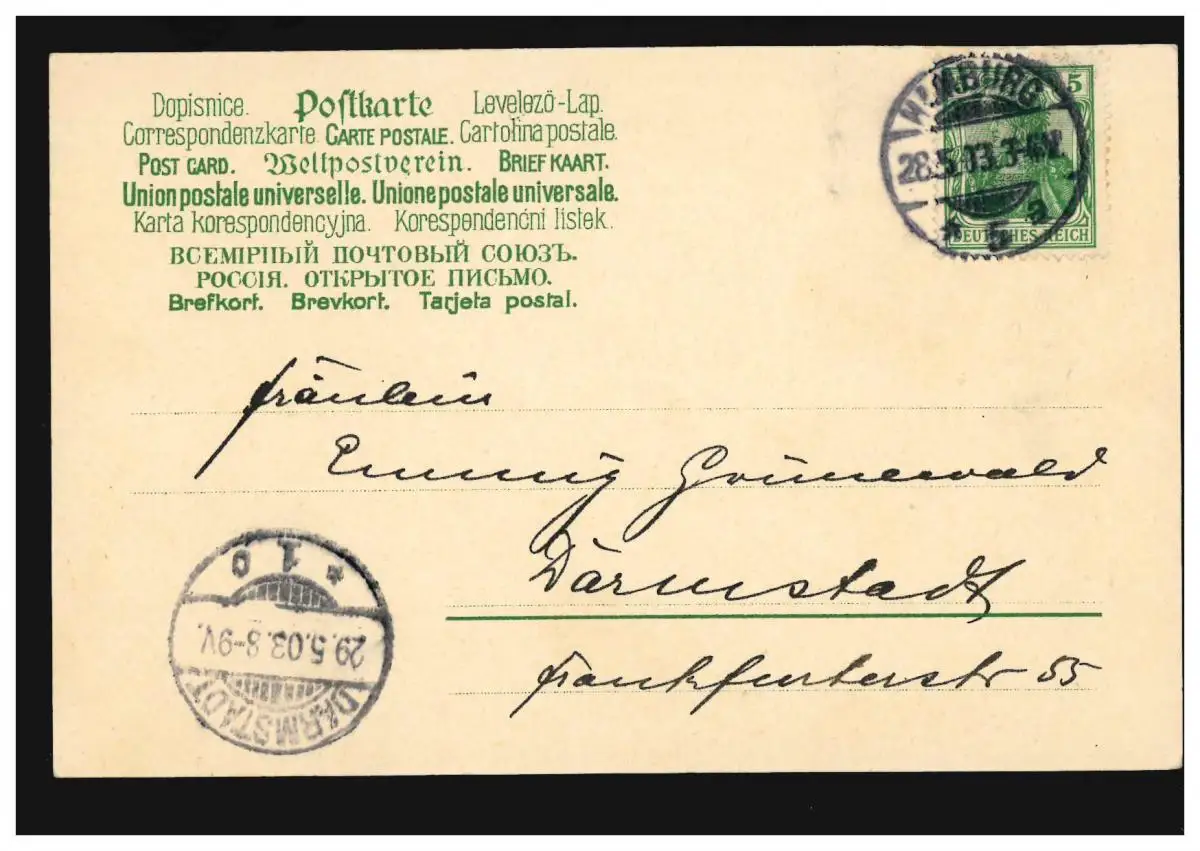 Dopisnice. Postkarte Levelező-Lap.
Correspondenzkarte. CARTE POSTALE. Cartolina postale.
POST CARD. Weltpostverein. BRIEFKAART.
Union postale universelle. Unione postale universale.
Karta korespondencyjna. Korespondenční lístek.
ВСЕМІРНЫЙ ПОЧТОВЫЙ СОЮЗЪ.
РОССІЯ. ОТКРЫТОЕ ПИСЬМО.
Brefkort. Brevkort. Tarjeta postal.
5
DEUTSCHES REICH
28.5.03. 3-4
* 5 a
Fräulein
Emmy Grünewald
Darmstadt
Frankfurterstr 55
DARMSTADT
29.5.03. 8-9V.
* 1 o